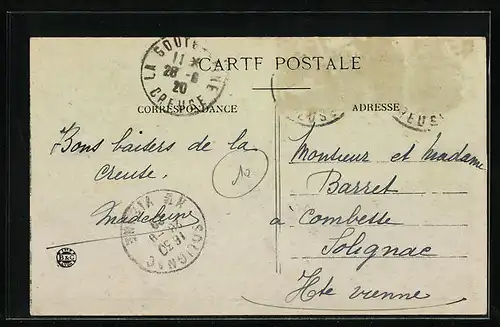 CARTE POSTALE
LA SOUTERRAINE
11
28 - 8
20
CREUSE
CREUSE
CREUSE
CORRESPONDANCE
ADRESSE
Bons baisers de la
Creuse.
Madeleine
10
Monsieur et Madame
Barret
à Combette
Solignac
Hte Vienne
SOLIGNAC
Hte VIENNE
16 30
B&G